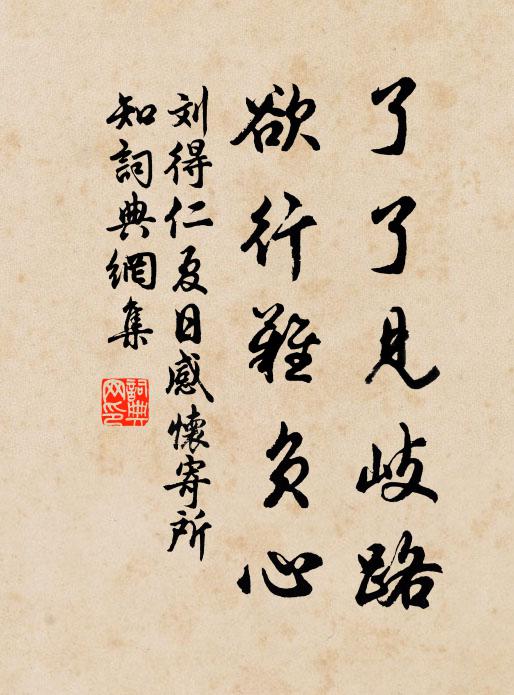 了了見岐路
欲行難負心
刘得仁夏日感懷寄所
知詞典網集
詞典
网印